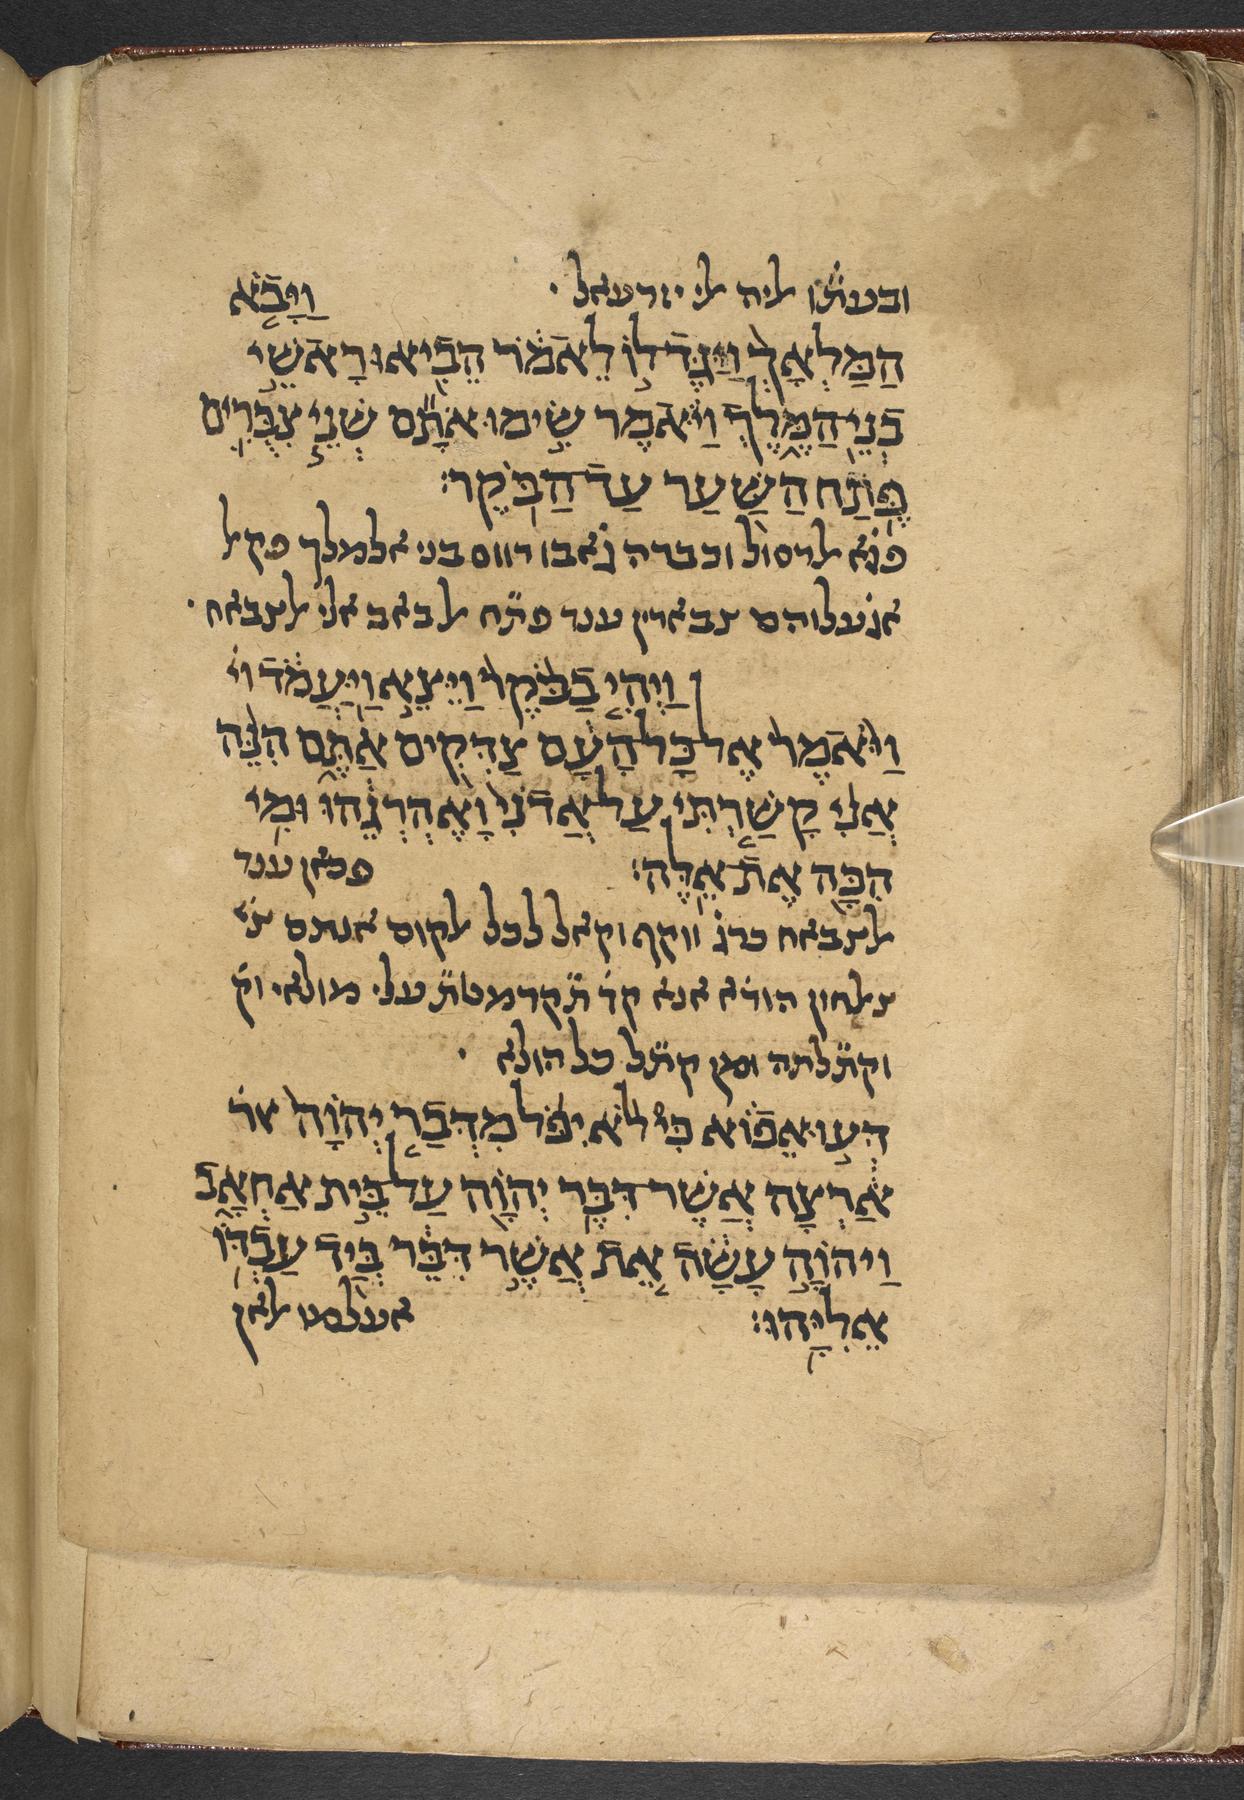 ובעתׄו ליה לי יזרעאל · וַיָּבֹא
הַמַּלְאָךְ וַיַּגֶּד־לוֹ לֵאמֹר הֵבִיאוּ רָאשֵׁי
בְּנֵי הַמֶּלֶךְ וַיֹּאמֶר שִׂימוּ אֹתָם שְׁנֵי צִבֻּרִים
פֶּתַח הַשַּׁעַר עַד הַבֹּקֶר׃
פגׄא לרסול וכברה גׄאבו רווס בני אלמלך פקל
אגׄעלוהם צבארין ענד פתׄח לבאב אלי לצבאח ·
וַיְהִי בַבֹּקֶר וַיֵּצֵא וַיַּעֲמֹד וי
וַיֹּאמֶר אֶל כָּל הָעָם צַדִּקִים אַתֶּם הִנֵּה
אֲנִי קָשַׁרְתִּי עַל אֲדֹנִי וָאֶהְרְגֵהוּ וּמִי
הִכָּה אֶת אֵלֶּה׃ פכאן ענד
לצבאח כרגׄ ווקף וקאל לכל לקום אנתם צׄי
צלחון הודׄא אנא קד תׄקרמטתׄ עלי מולאי וק
וקתׄלתה ומן קתׄל כל הולא ·
דְּעוּ אֵפוֹא כִּי לֹא יִפֹּל מִדְּבַר יְהוָה אר
אַרְצָה אֲשֶׁר דִּבֶּר יְהוָה עַל בֵּית אַחְאָב
וַיהוָה עָשָׂה אֵת אֲשֶׁר דִּבֶּר בְּיַד עַבְדּוֹ
אֵלִיָּהוּ׃ אעלמו לאן